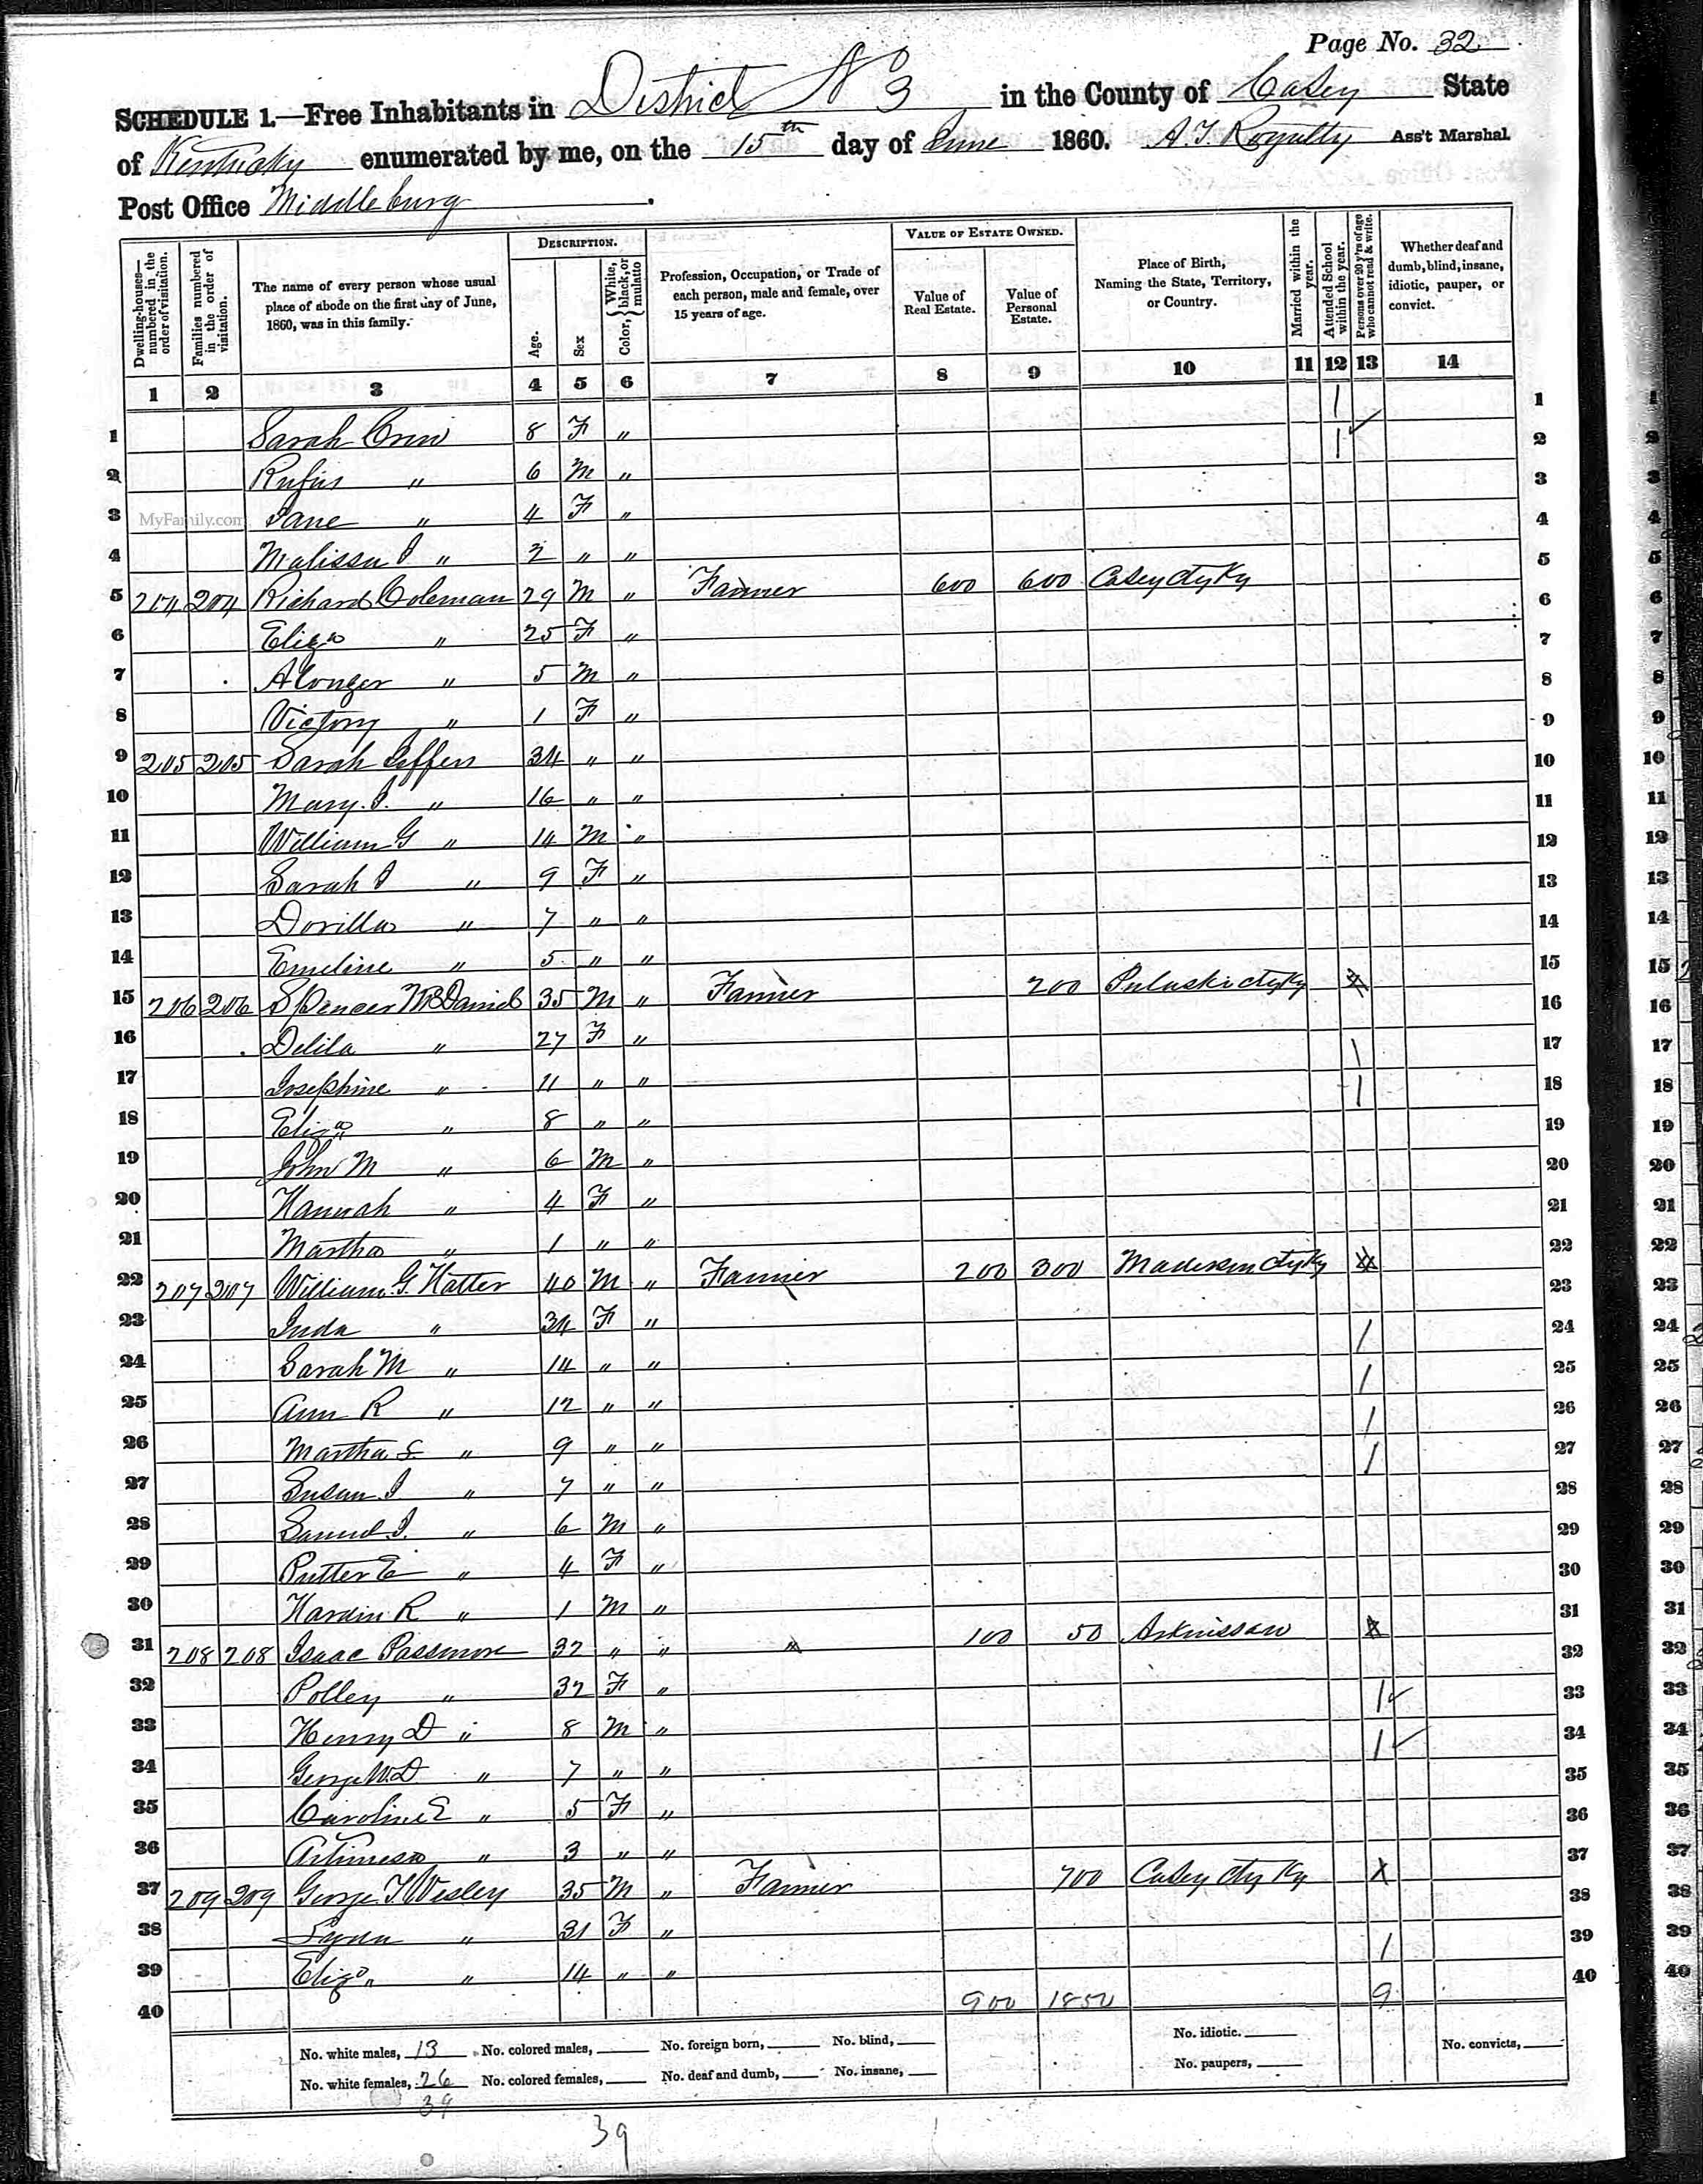 Page No. 32
SCHEDULE 1.—Free Inhabitants in District No 3 in the County of Casey State
of Kentucky enumerated by me, on the 15th day of June 1860. A. T. Royalty Ass't Marshal.
Post Office Middleburg
Dwelling-houses—numbered in the order of visitation.
Families numbered in the order of visitation.
The name of every person whose usual place of abode on the first day of June, 1860, was in this family.
DESCRIPTION.
Age.
Sex
Color, { White, black, or mulatto
Profession, Occupation, or Trade of each person, male and female, over 15 years of age.
VALUE OF ESTATE OWNED.
Value of Real Estate.
Value of Personal Estate.
Place of Birth, Naming the State, Territory, or Country.
Married within the year.
Attended School within the year.
Persons over 20 y'rs of age who cannot read & write.
Whether deaf and dumb, blind, insane, idiotic, pauper, or convict.
1 2 3 4 5 6 7 8 9 10 11 12 13 14
1 Sarah 8 F " 1 1
2 Rufus " 6 M " 1 2
3 MyFamily.com Jane " 4 F " 3
4 Malissa J " 2 " " 4
5 204 204 Richard Coleman 29 M " Farmer 600 600 Casey Cty Ky 5
6 Eliza " 25 F " 6
7 Alonzer " 5 M " 7
8 Victory " 1 F " 8
9 205 205 Sarah Jeffers 34 " " 9
10 Mary J. " 16 " " 10
11 William G " 14 M " 11
12 Sarah J " 9 F " 12
13 Dorilla " 7 " " 13
14 Emeline " 5 " " 14
15 206 206 Spencer McDaniel 35 M " Farmer 200 Pulaski Cty Ky X 15
16 Delila " 27 F " 16
17 Josephine " 11 " " 1 17
18 Eliza " 8 " " 1 18
19 John M " 6 M " 19
20 Hannah " 4 F " 20
21 Martha " 1 " " 21
22 207 207 William G. Hatter 40 M " Farmer 200 300 Madison Cty Ky X 22
23 Juda " 34 F " 23
24 Sarah M " 14 " " 1 24
25 Ann R " 12 " " 1 25
26 Martha S. " 9 " " 1 26
27 Susan J " 7 " " 1 27
28 Samuel J. " 6 M " 28
29 Putter E " 4 F " 29
30 Hardin R " 1 M " 30
31 208 208 Isaac Passmore 32 " " " 100 50 Arkinssaw X 31
32 Polley " 32 F " 32
33 Henry D " 8 M " 1 33
34 George W. D " 7 " " 1 34
35 Caroline E " 5 F " 35
36 " 3 " " 36
37 209 209 George T Wesley 35 M " Farmer 700 Casey Cty Ky X 37
38 " 31 F " 38
39 Eliza " 14 " " 1 39
40 900 1850 9 40
No. white males, 13 No. colored males, No. foreign born, No. blind, No. idiotic. No. convicts,
No. white females, 26 No. colored females, No. deaf and dumb, No. insane, No. paupers,
39
39